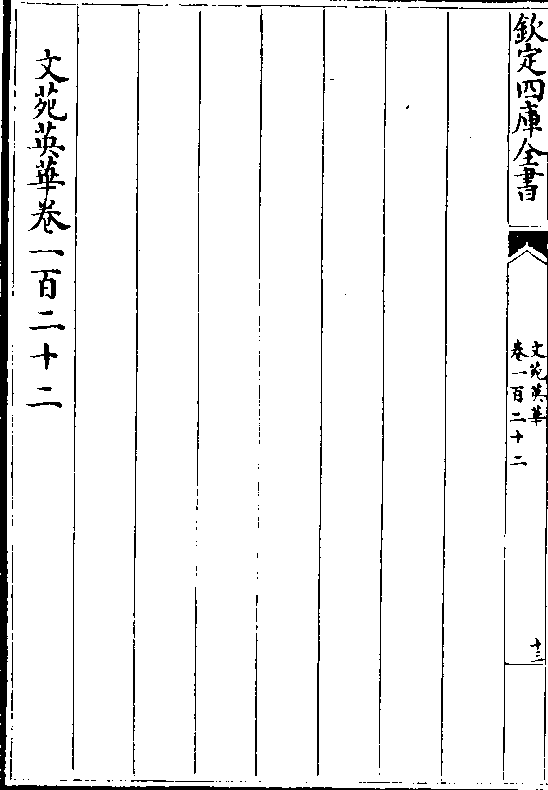 欽定四庫全書
文苑英華
卷一百二十二
十三
文苑英華卷一百二十二